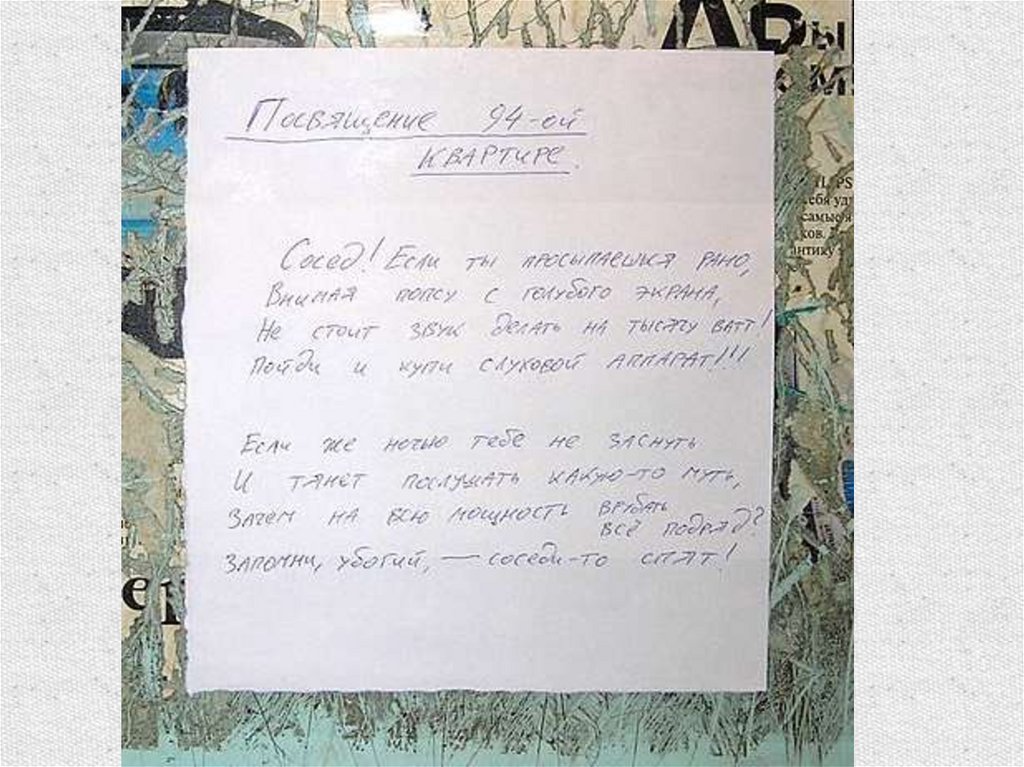 Ары
Посвящение 94-ой
квартире.
Сосед! Если ты просыпаешься рано,
Внимая попсу с голубого экрана,
Не стоит звук делать на тысячу ватт!
Пойди и купи слуховой аппарат!!!
Если же ночью тебе не заснуть
И тянет послушать какую-то муть,
Зачем на всю мощность врубать
всё подряд?
Запомни, убогий, — соседи-то спят!